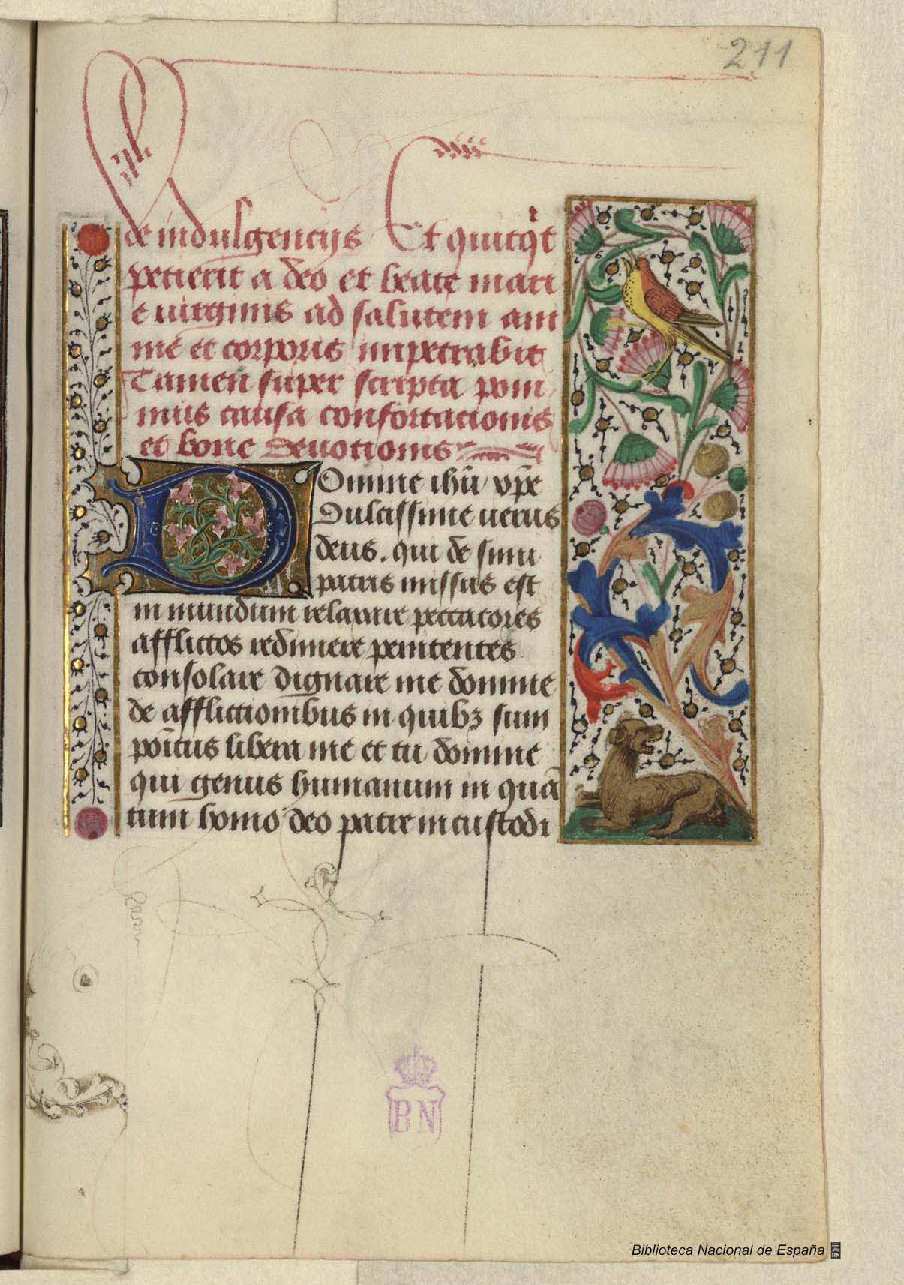 211
de indulgencijs Et quitq̇t
petierit a deo et beate mari
e virginis ad salutem ani
mē et corporis impetrabit
Tamen super scripta pom
mius causa confortacionis
et bone deuotionis
Domine ihū xp̄e
dulcissime uerus
deus. qui de sinu
patris missus est
in mundum relaxare peccatores
afflictos redimere penitentes
consolare dignare me domine
de afflictionibus in quibȝ sum
poītus libera me et tu domine
qui genus humanum in quā
tum homo deo patre in custodi
BN
Biblioteca Nacional de España